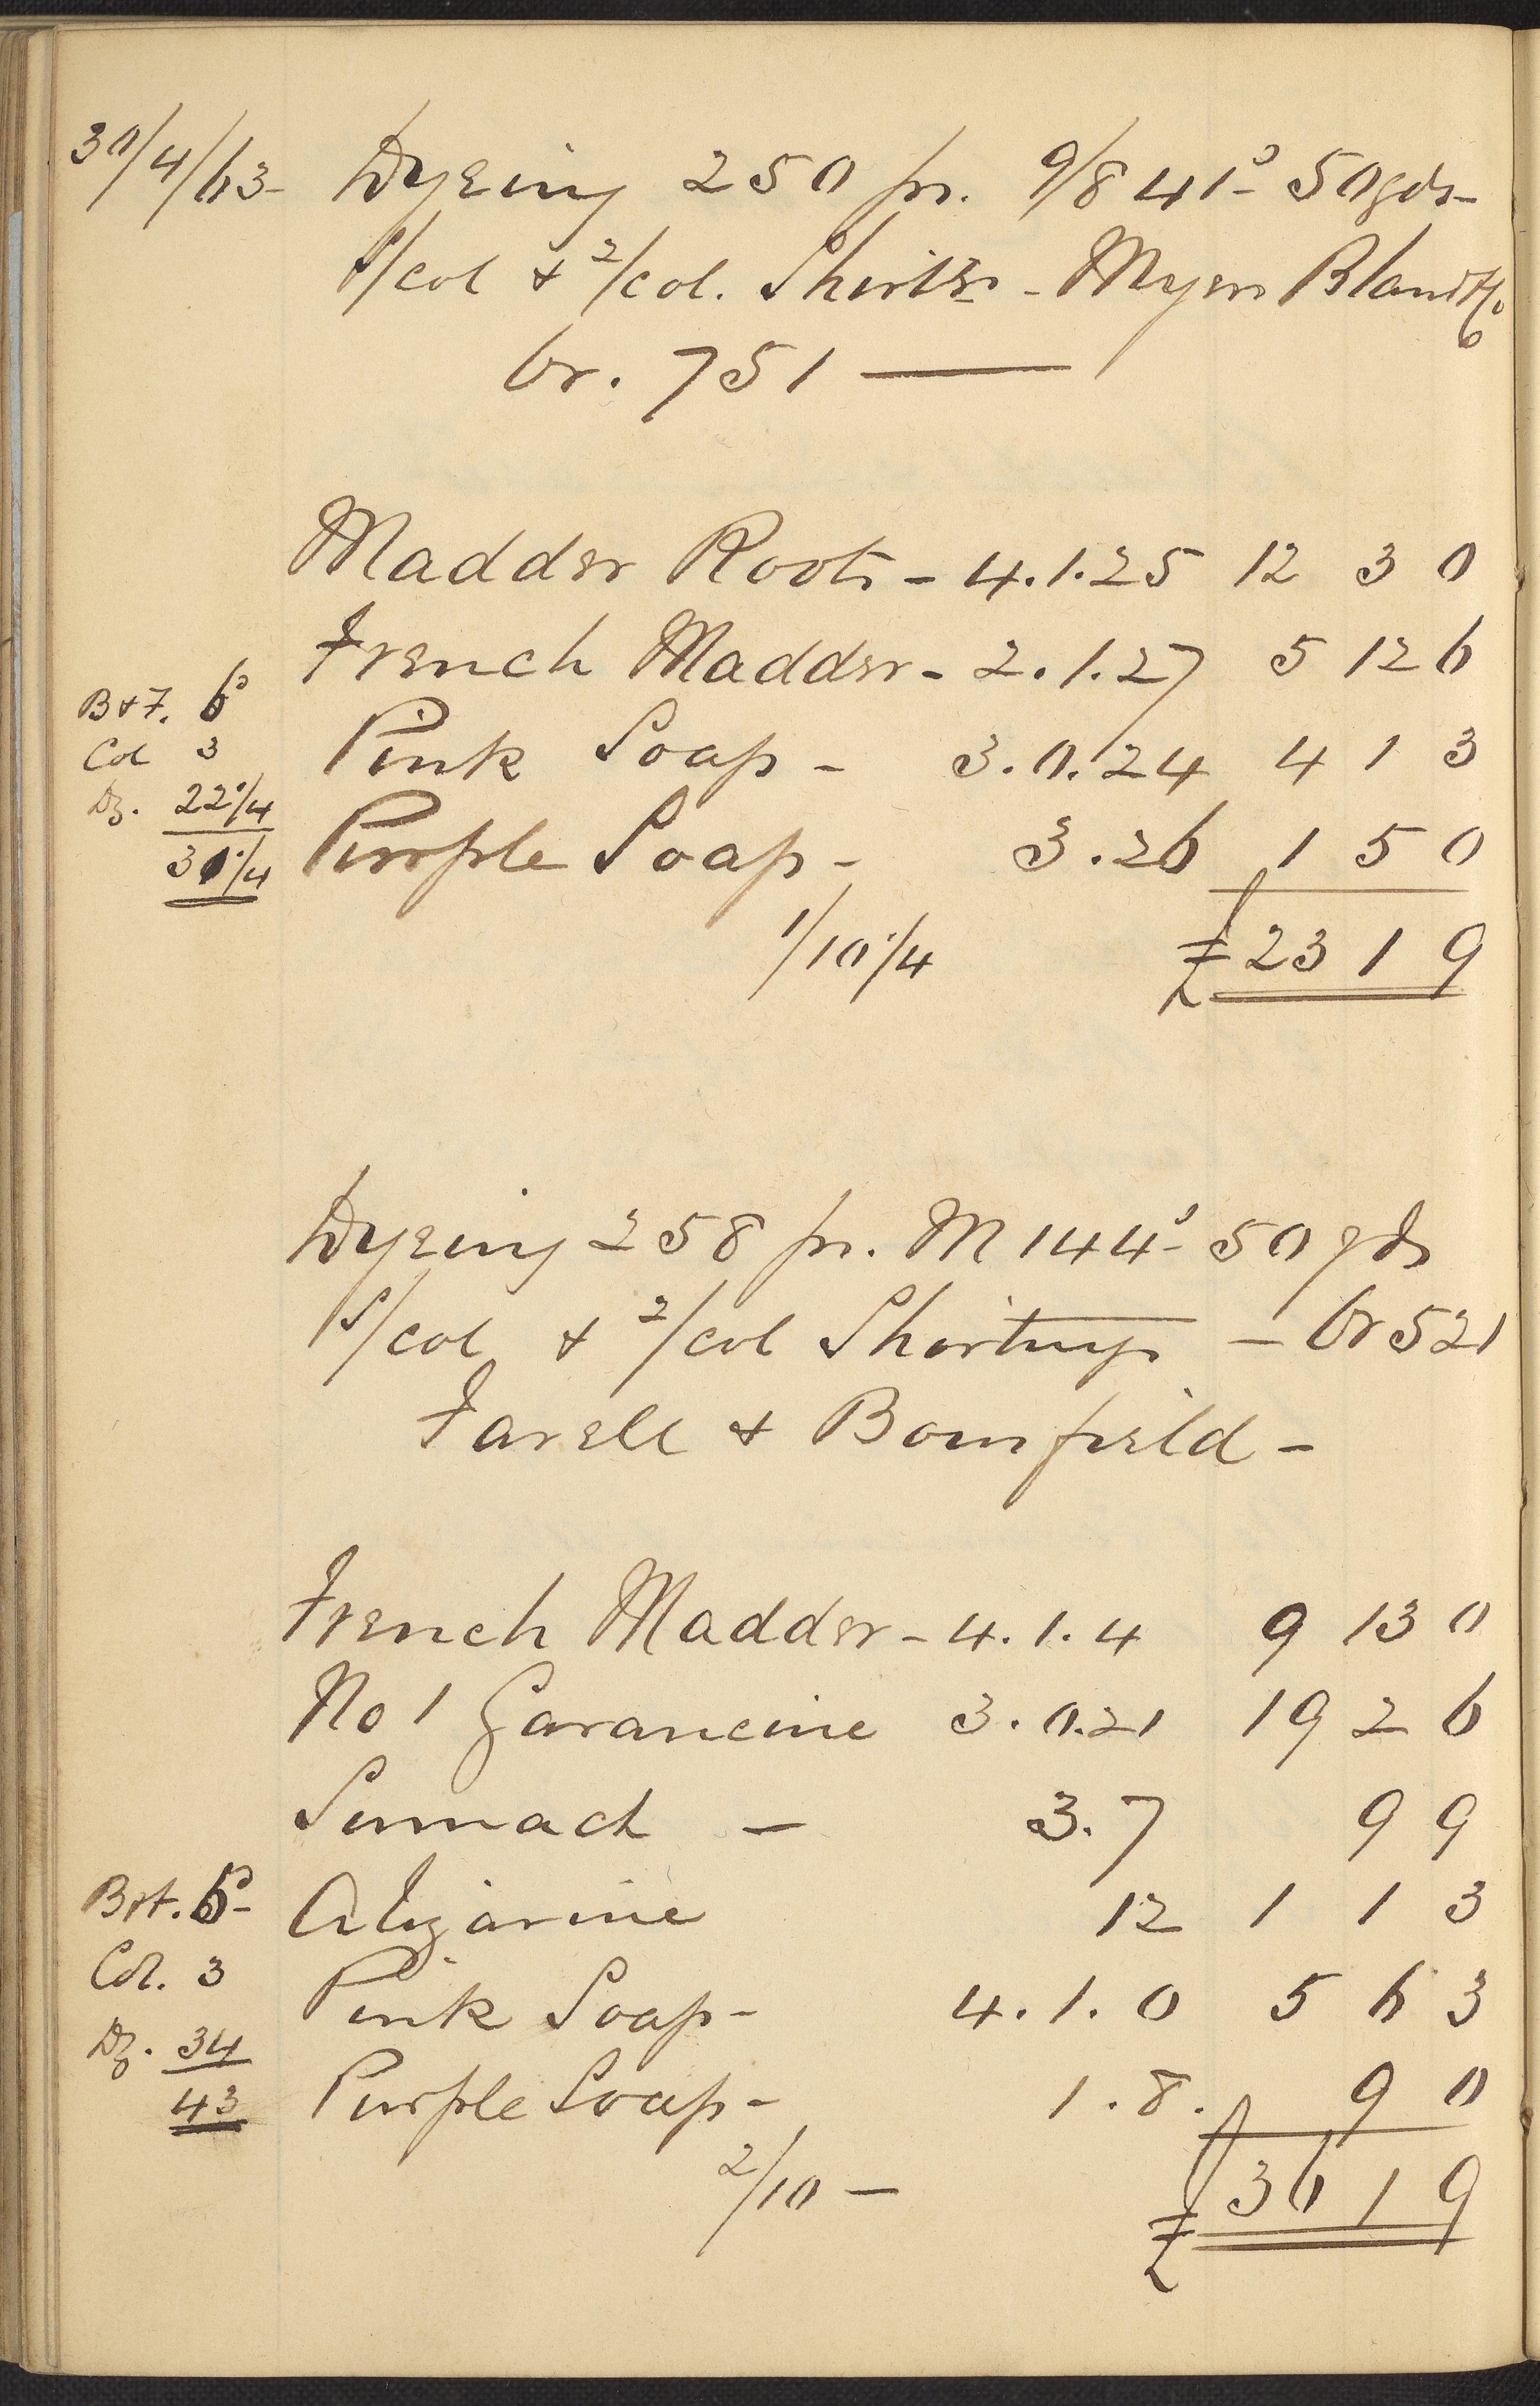 30/4/63- Dyeing 250 ps. 9/8 41s- 50yds-
S/col & 2/col. Shirts - Myers Bland &Co
Or. 751 —
Madder Roots - 4.1.25 12 3 0
French Madder - 2.1.27 5 12 6
B&F. 6s
Pink Soap - 3.0.24 4 1 3
Col 3
Dg. 22 1/4
Purple Soap - 3.26 1 5 0
31 1/4
1/10 1/4 £23 1 9
Dyeing 258 ps. M 144s- 50 yds
S/col & 2/col Shirtings - Or 521
Farell & Bomfield -
French Madder - 4.1.4 9 13 0
No 1 Garancine 3.0.21 19 2 6
Sumach - 3.7 9 9
B&F. 6s- Alizarine 12 1 1 3
Col. 3 Pink Soap - 4.1.0 5 6 3
Dg. 34
43 Purple Soap - 1.8. 9 0
2/10 — £36 1 9